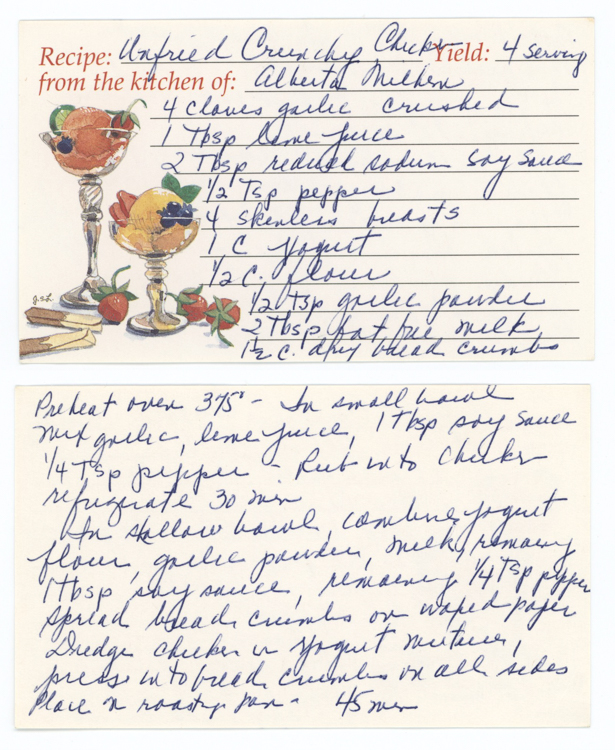 Recipe: Unfried Crunchy Chicken Yield: 4 serving
from the kitchen of: Alberta
4 cloves garlic crushed
1 Tbsp lime juice
2 Tbsp reduced sodium soy sauce
1/2 Tsp pepper
4 skenless breasts
1 C yogurt
1/2 C. flour
1/2 Tsp garlic powder
2 Tbsp fat free milk
1 1/2 C. dry bread crumbs
J.S.L.
Preheat oven 375° - In small bowl
mix garlic, lime juice, 1 Tbsp soy sauce
1/4 Tsp pepper - Rub into chicken
refrigerate 30 min
In shallow bowl, combine yogurt
flour, garlic powder, milk, remaining
1 Tbsp soy sauce, remaining 1/4 Tsp pepper
spread bread crumbs on waxed paper
Dredge chicken in yogurt mixture,
press into bread crumbs on all sides
Place in roasting pan - 45 min